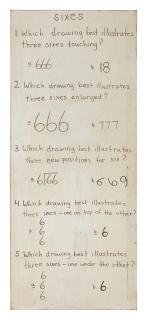 SIXES
1. Which drawing best illustrates
three sixes touching?
a 666
b 18
2. Which drawing best illustrates
three sixes enlarged?
a 666
b 777
3. Which drawing best illustrates
three new positions for six?
a 6/66
b 669
4. Which drawing best illustrates
three sixes – one on top of the other?
6
a 6
6
b 6
5. Which drawing best illustrates
three sixes – one under the other?
6
a 6
6
b 6